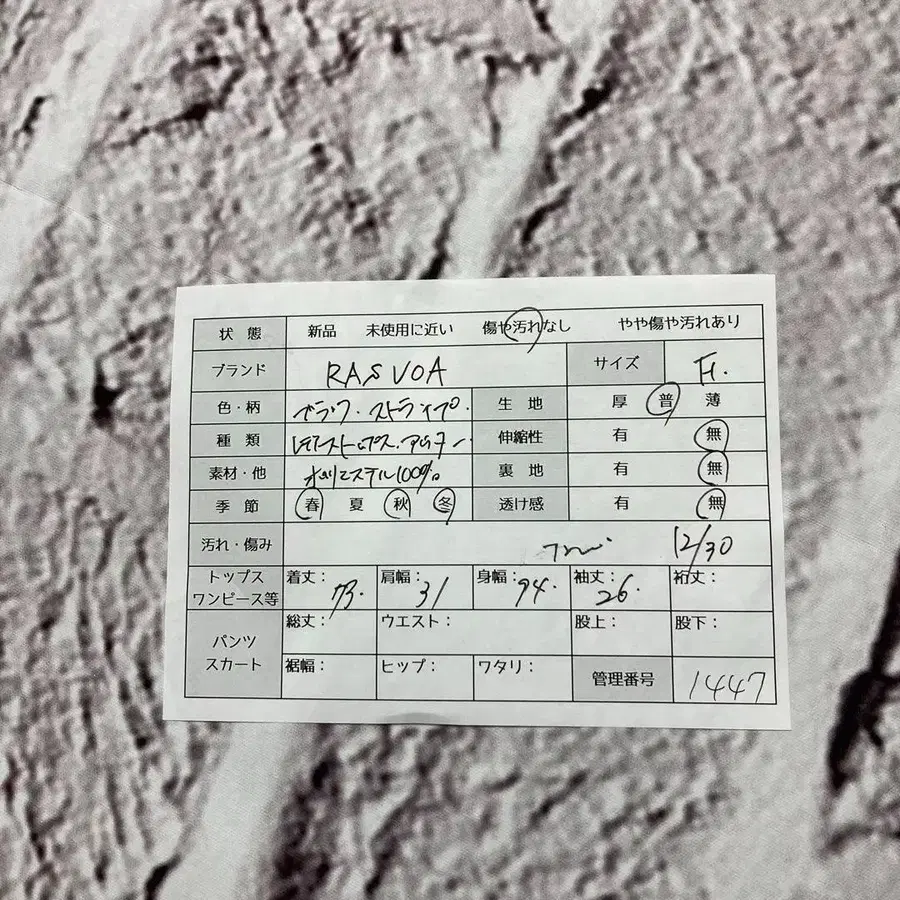 状態 新品 未使用に近い 傷や汚れなし やや傷や汚れあり
ブランド RASVOA サイズ F.
色・柄 ストライプ. 生地 厚 普 薄
種類 伸縮性 有 無
素材・他 ポリエステル100% 裏地 有 無
季節 春 夏 秋 冬 透け感 有 無
汚れ・傷み 12/30
トップス ワンピース等 着丈: 73. 肩幅: 31 身幅: 94. 袖丈: 26. 裄丈:
パンツ スカート 総丈: ウエスト: 股上: 股下:
裾幅: ヒップ: ワタリ: 管理番号 1447